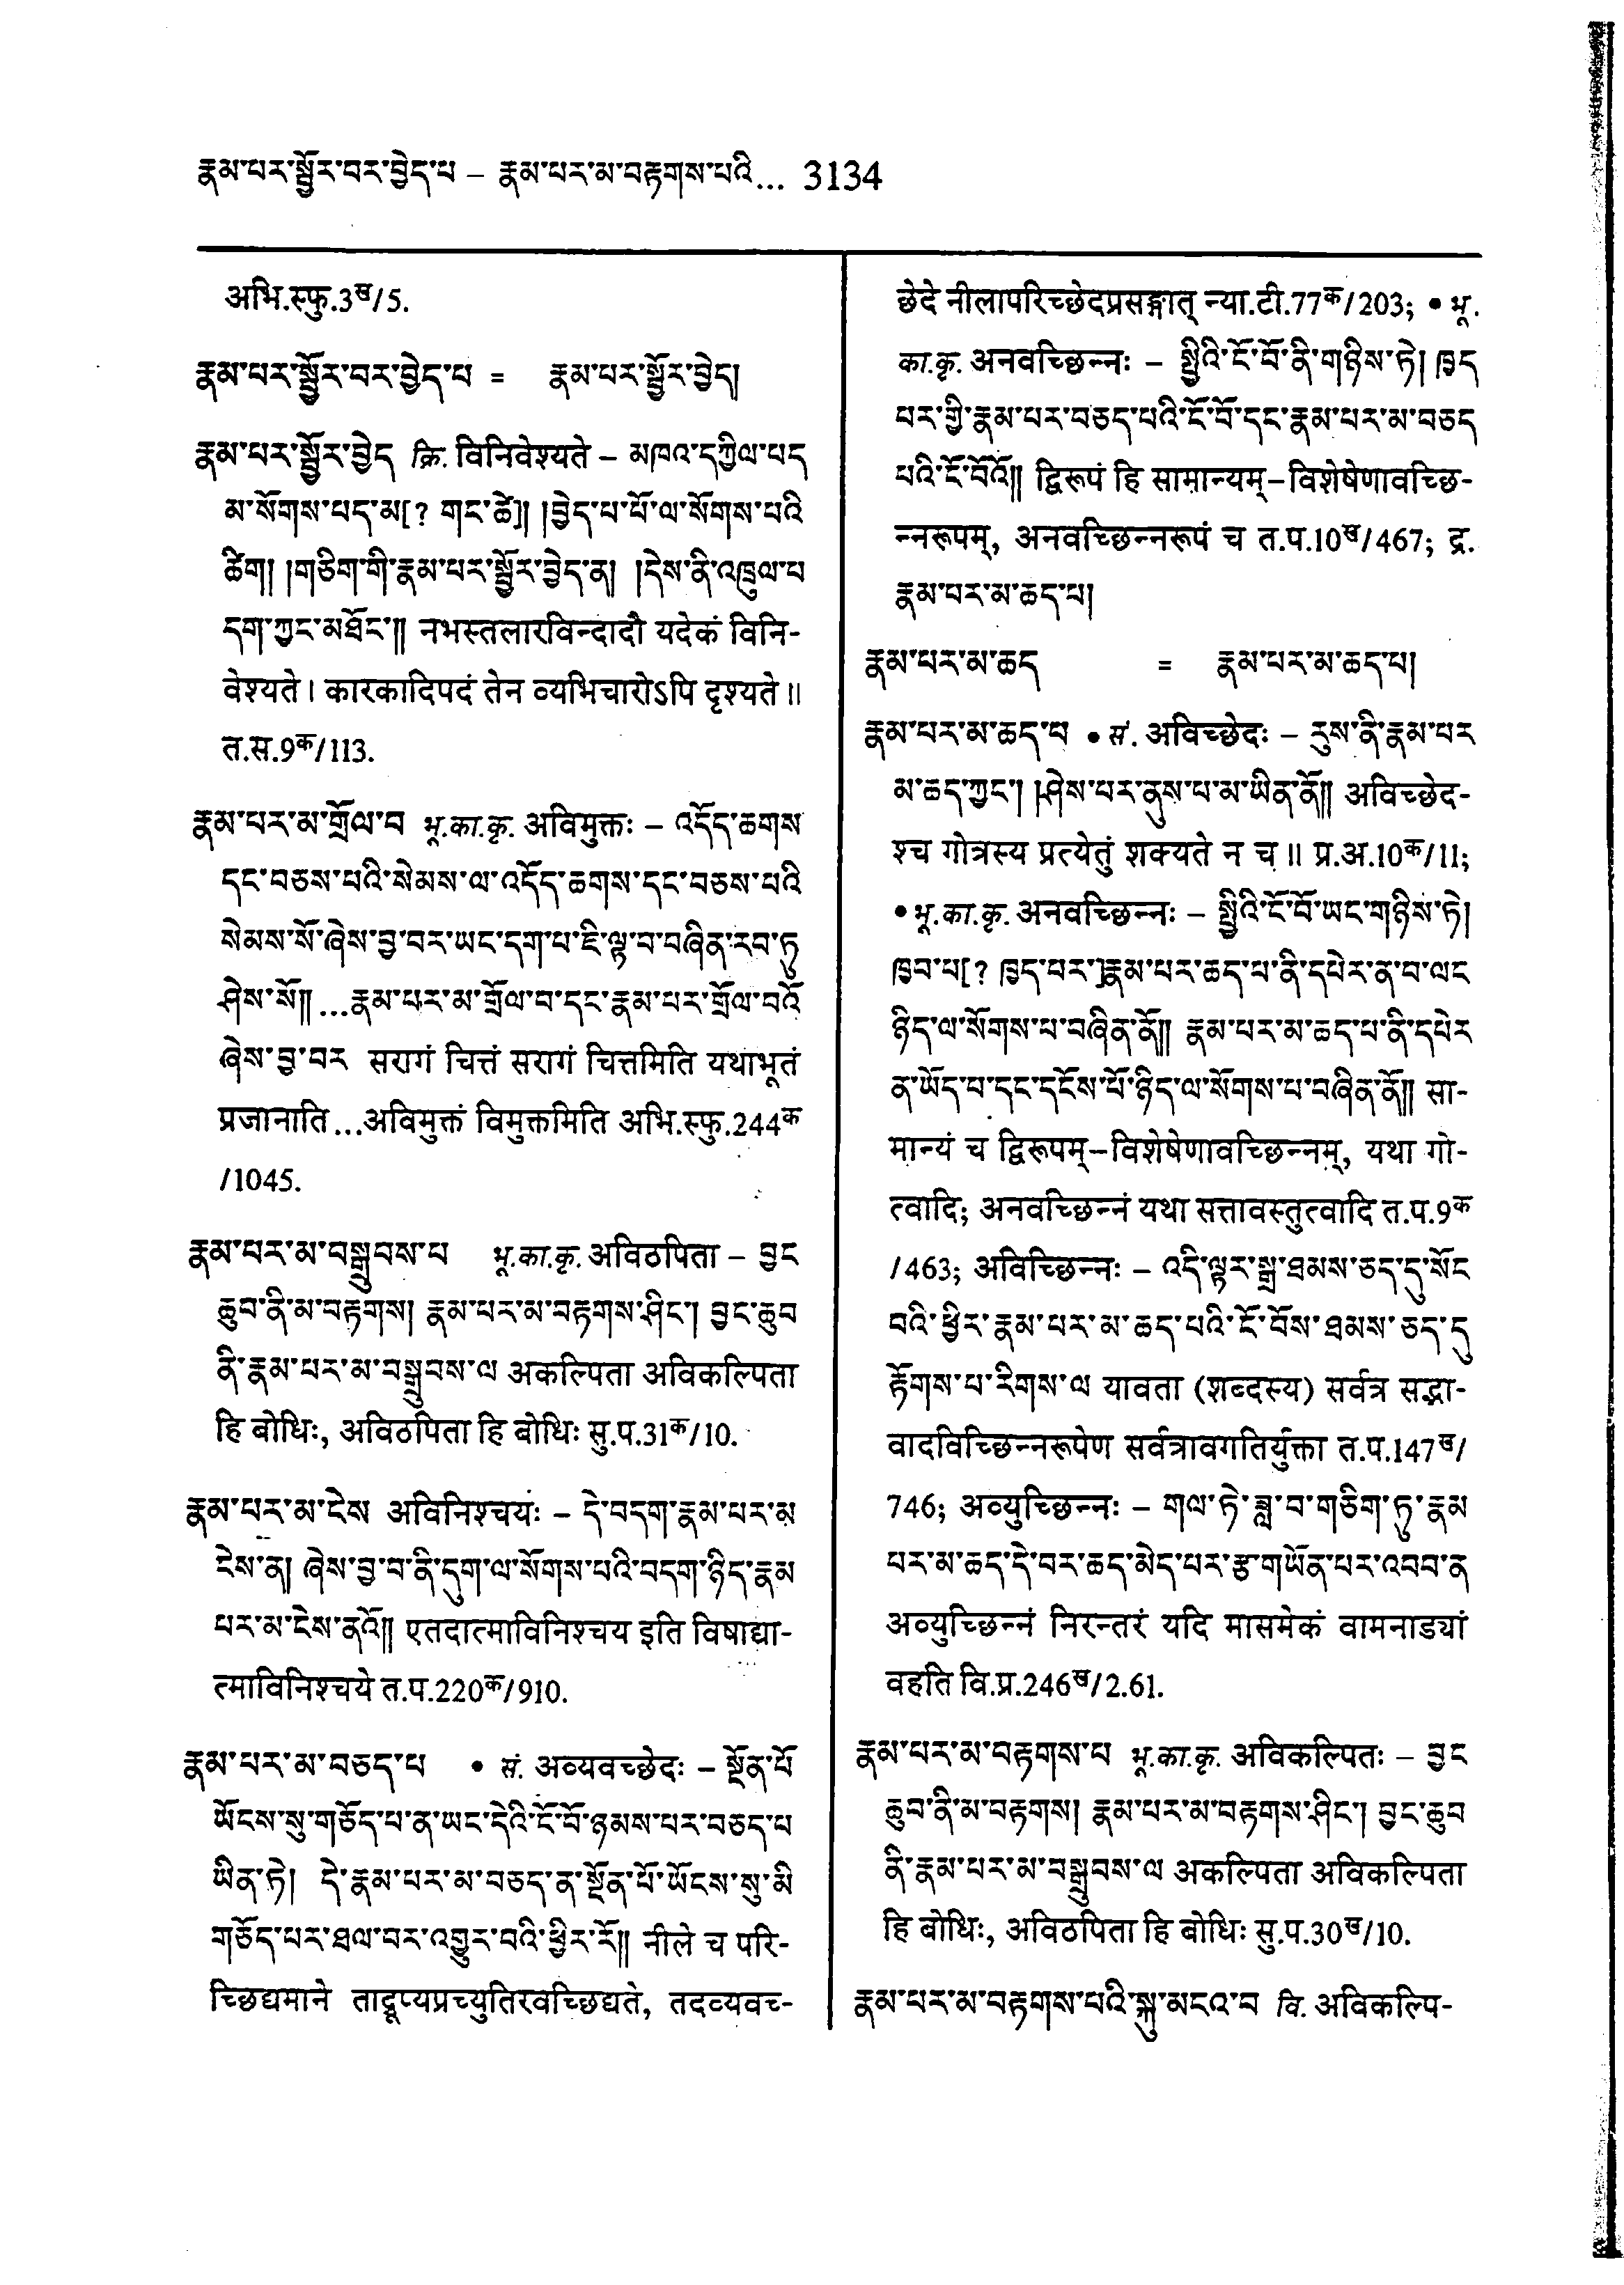 རྣམ་པར་སྦྱོར་བར་བྱེད་པ – རྣམ་པར་མ་བརྟགས་པའི... 3134
अभि.स्फु.3ख/5.
རྣམ་པར་སྦྱོར་བར་བྱེད་པ = རྣམ་པར་སྦྱོར་བྱེད།
རྣམ་པར་སྦྱོར་བྱེད क्रि. विनिवेश्यते – མཁའ་དཀྱིལ་པད
མ་སོགས་པད་མ[? གང་ཚེ]། །བྱེད་པ་པོ་ལ་སོགས་པའི
ཚིག། །གཅིག་གི་རྣམ་པར་སྦྱོར་བྱེད་ན། །དེས་ནི་འཁྲུལ་པ
དག་ཀྱང་མཐོང་༎ नभस्तलारविन्दादौ यदेकं विनि-
वेश्यते। कारकादिपदं तेन व्यभिचारोऽपि दृश्यते॥
त.स.9क/113.
རྣམ་པར་མ་གྲོལ་བ भू.का.कृ. अविमुक्तः – འདོད་ཆགས
དང་བཅས་པའི་སེམས་ལ་འདོད་ཆགས་དང་བཅས་པའི
སེམས་སོ་ཞེས་བྱ་བར་ཡང་དག་པ་ཇི་ལྟ་བ་བཞིན་རབ་ཏུ
ཤེས་སོ༎ ...རྣམ་པར་མ་གྲོལ་བ་དང་རྣམ་པར་གྲོལ་བའོ
ཞེས་བྱ་བར सरागं चित्तं सरागं चित्तमिति यथाभूतं
प्रजानाति ...अविमुक्तं विमुक्तमिति अभि.स्फु.244क
/1045.
རྣམ་པར་མ་བསྒྲུབས་པ भू.का.कृ. अविठपिता – བྱང
ཆུབ་ནི་མ་བརྟགས། རྣམ་པར་མ་བརྟགས་ཤིང་། བྱང་ཆུབ
ནི་རྣམ་པར་མ་བསྒྲུབས་ལ अकल्पिता अविकल्पिता
हि बोधिः, अविठपिता हि बोधिः सु.प.31क/10.
རྣམ་པར་མ་ངེས अविनिश्चयः – དེ་བདག་རྣམ་པར་མ
ངེས་ན། ཞེས་བྱ་བ་ནི་དུག་ལ་སོགས་པའི་བདག་ཉིད་རྣམ
པར་མ་ངེས་ནའོ༎ एतदात्माविनिश्चय इति विषाद्या-
त्माविनिश्चये त.प.220क/910.
རྣམ་པར་མ་བཅད་པ • सं. अव्यवच्छेदः – སྔོན་པོ
ཡོངས་སུ་གཅོད་པ་ན་ཡང་དེའི་ངོ་བོ་ཉམས་པར་བཅད་པ
ཡིན་ཏེ། དེ་རྣམ་པར་མ་བཅད་ན་སྔོན་པོ་ཡོངས་སུ་མི
གཅོད་པར་ཐལ་བར་འགྱུར་བའི་ཕྱིར་རོ༎ नीले च परि-
च्छिद्यमाने ताद्रूप्यप्रच्युतिरवच्छिद्यते, तदव्यवच-
छेदे नीलापरिच्छेदप्रसङ्गात् न्या.टी.77क/203; • भू.
का.कृ. अनवच्छिन्नः – སྤྱིའི་ངོ་བོ་ནི་གཉིས་ཏེ། ཁྱད
པར་གྱི་རྣམ་པར་བཅད་པའི་ངོ་བོ་དང་རྣམ་པར་མ་བཅད
པའི་ངོ་བོའོ༎ द्विरूपं हि सामान्यम्–विशेषेणावच्छि-
न्नरूपम्, अनवच्छिन्नरूपं च त.प.10ख/467; द्र.
རྣམ་པར་མ་ཆད་པ།
རྣམ་པར་མ་ཆད = རྣམ་པར་མ་ཆད་པ།
རྣམ་པར་མ་ཆད་པ • सं. अविच्छेदः – རུས་ནི་རྣམ་པར
མ་ཆད་ཀྱང་། །ཤེས་པར་ནུས་པ་མ་ཡིན་ནོ༎ अविच्छेद-
श्च गोत्रस्य प्रत्येतुं शक्यते न च॥ प्र.अ.10क/11;
• भू.का.कृ. अनवच्छिन्नः – སྤྱིའི་ངོ་བོ་ཡང་གཉིས་ཏེ།
ཁྱབ་པ[? ཁྱད་པར་]རྣམ་པར་ཆད་པ་ནི་དཔེར་ན་བ་ལང
ཉིད་ལ་སོགས་པ་བཞིན་ནོ༎ རྣམ་པར་མ་ཆད་པ་ནི་དཔེར
ན་ཡོད་པ་དང་དངོས་པོ་ཉིད་ལ་སོགས་པ་བཞིན་ནོ༎ सा-
मान्यं च द्विरूपम्–विशेषेणावच्छिन्नम्, यथा गो-
त्वादि; अनवच्छिन्नं यथा सत्तावस्तुत्वादि त.प.9क
/463; अविच्छिन्नः – འདི་ལྟར་སྒྲ་ཐམས་ཅད་དུ་སོང
བའི་ཕྱིར་རྣམ་པར་མ་ཆད་པའི་ངོ་བོས་ཐམས་ཅད་དུ
རྟོགས་པ་རིགས་ལ यावता (शब्दस्य) सर्वत्र सद्भा-
वादविच्छिन्नरूपेण सर्वत्रावगतिर्युक्ता त.प.147ख/
746; अव्युच्छिन्नः – གལ་ཏེ་ཟླ་བ་གཅིག་ཏུ་རྣམ
པར་མ་ཆད་དེ་བར་ཆད་མེད་པར་རྩ་གཡོན་པར་འབབ་ན
अव्युच्छिन्नं निरन्तरं यदि मासमेकं वामनाड्यां
वहति वि.प्र.246ख/2.61.
རྣམ་པར་མ་བརྟགས་པ भू.का.कृ. अविकल्पितः – བྱང
ཆུབ་ནི་མ་བརྟགས། རྣམ་པར་མ་བརྟགས་ཤིང་། བྱང་ཆུབ
ནི་རྣམ་པར་མ་བསྒྲུབས་ལ अकल्पिता अविकल्पिता
हि बोधिः, अविठपिता हि बोधिः सु.प.30ख/10.
རྣམ་པར་མ་བརྟགས་པའི་སྐུ་མངའ་བ वि. अविकल्पि-